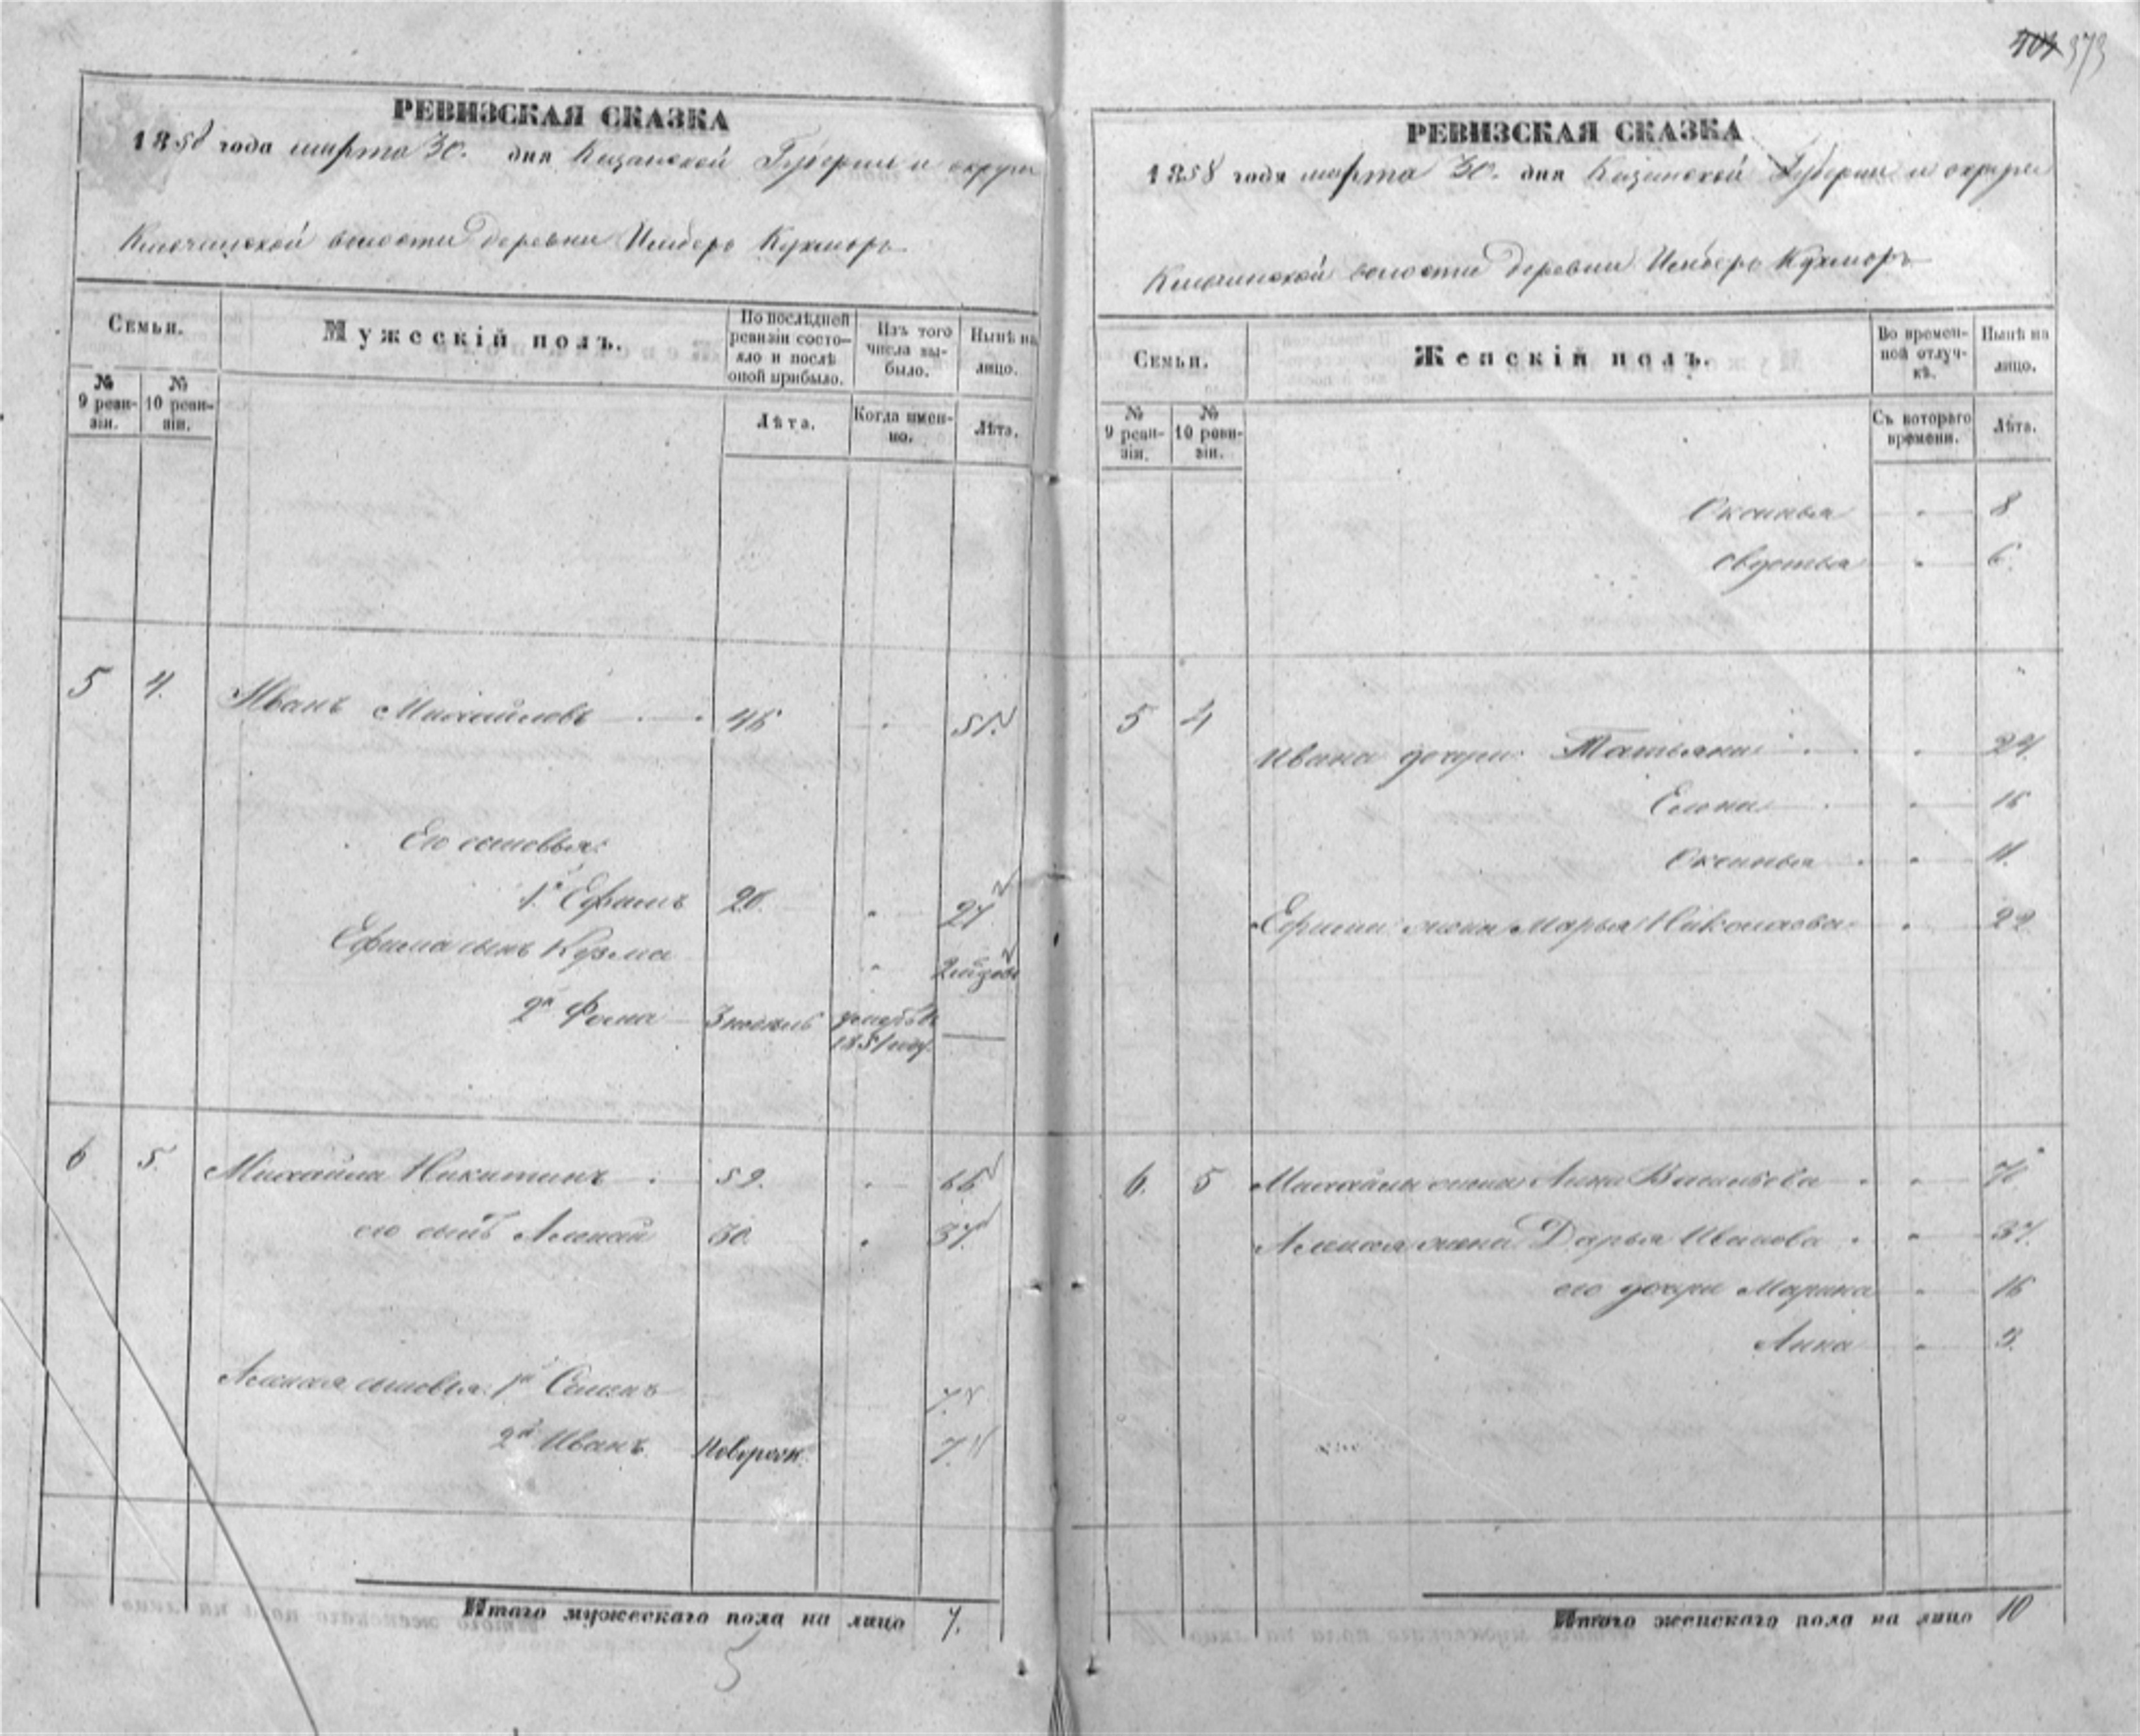 373
РЕВИЗСКАЯ СКАЗКА
1858 года марта 30. дня Казанской Губернии и округи
волости деревни Кукморъ
Семьи.
Мужескій полъ.
По послѣдней ревизіи состояло и послѣ оной прибыло.
Изъ того числа выбыло.
Нынѣ на лицо.
№ 9 ревизіи.
№ 10 ревизіи.
Лѣта.
Когда именно.
Лѣта.
5 4. Иванъ Михайловъ 51.
Его сыновья:
1й Ефимъ 20. 27
Ефима сынъ Кузма
2й Фома 3 1851
6 5. Михайла Никитинъ 59. 66
его сынъ Алексей 30 37.
Алексея сыновья: 1й Семенъ 7.
2й Иванъ Новорож. 7.
Итого мужескаго пола на лицо 7.
РЕВИЗСКАЯ СКАЗКА
1858 года марта 30. дня Казанской Губернии и округи
волости деревни Кукморъ
Семьи.
Женскій полъ.
Во временной отлучкѣ.
Нынѣ на лицо.
№ 9 ревизіи.
№ 10 ревизіи.
Съ котораго времени.
Лѣта.
Оксинья 8
Овдотья 6
5 4
Ивана дочери: Татьяна 24.
Елена 16
Оксинья 11.
Ефима жена Марья Николаева 22
6. 5 Михайлы жена Анна Васильева
Алексея жена Дарья Иванова 37.
его дочери Марина 16
Анна 3.
Итого женскаго пола на лицо 10